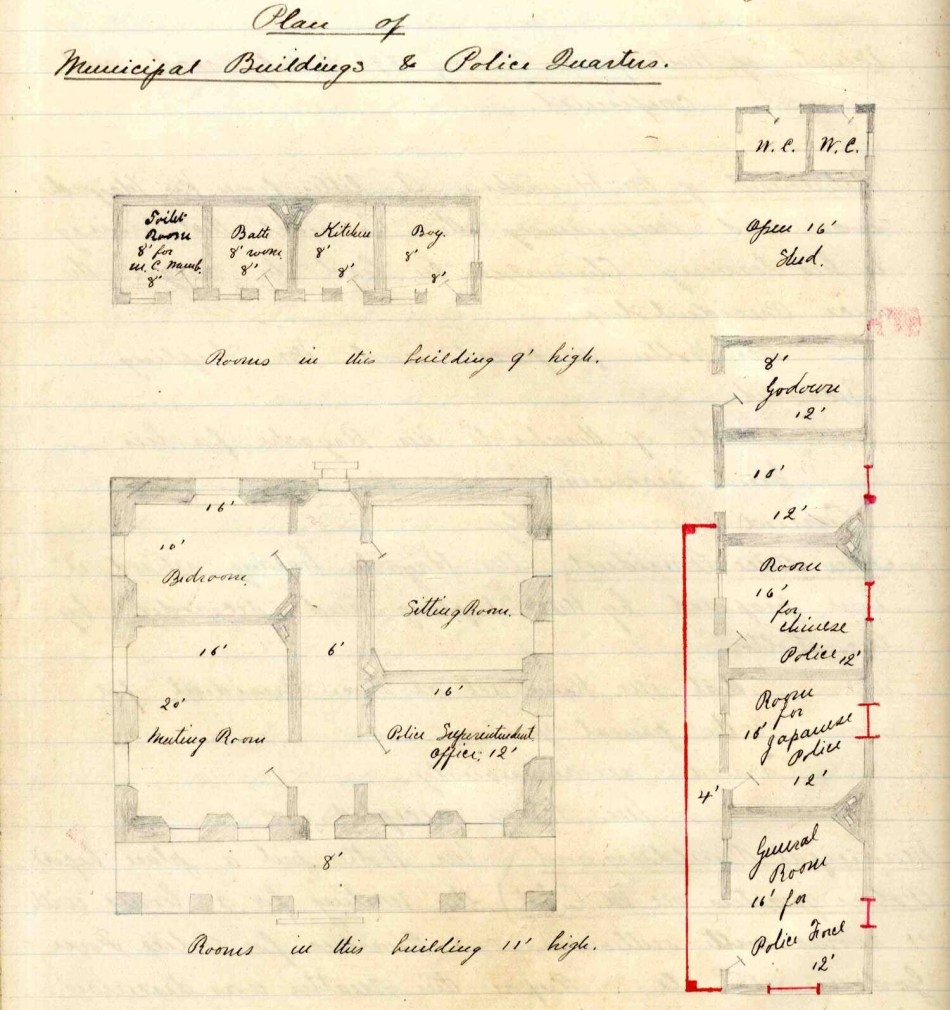 Plan of
Municipal Buildings & Police Quarters.
W.C.
W.C.
Open 16'
Shed.
Toilet
Room
8' for
M.C. Memb.
8'
Bath
8' room
8'
Kitchen
8'
8'
Boy.
8'
8'
Rooms in this building 9' high.
8'
Godown
12'
10'
12'
16'
10'
Bedroom
Sitting Room.
16'
20'
Meeting Room
6'
16'
Police Superintendent
Office; 12'
8'
Rooms in this building 11' high.
Room
16'
for
Chinese
Police 12'
Room
for
16' Japanese
Police
12'
4'
General
Room
16' for
Police Force
12'